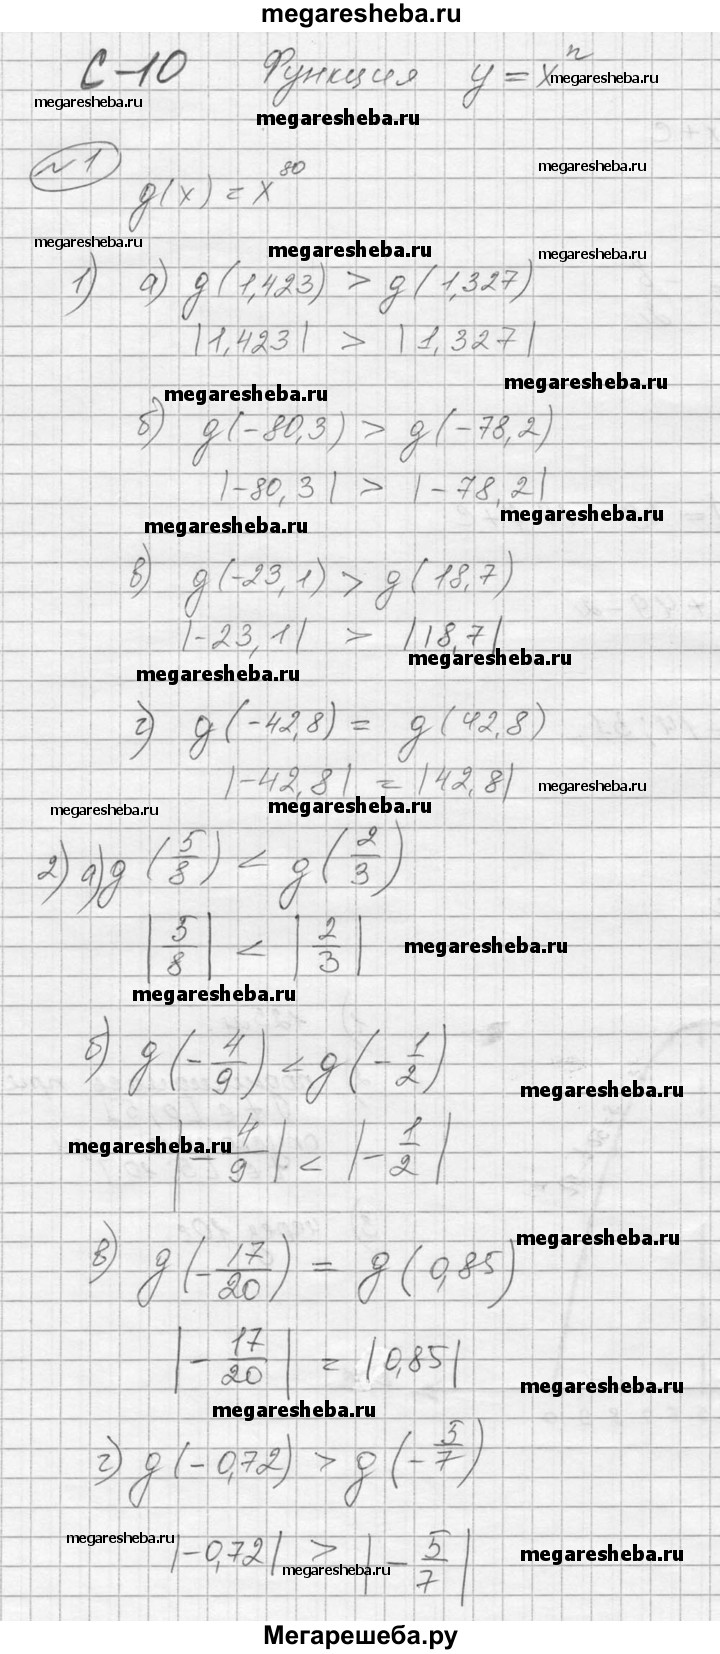 megaresheba.ru
С-10 Функция y = x^n
megaresheba.ru
megaresheba.ru
megaresheba.ru
№1
g(x) = x^80
megaresheba.ru
megaresheba.ru
megaresheba.ru
megaresheba.ru
1) а) g(1,423) > g(1,327)
|1,423| > |1,327|
megaresheba.ru
megaresheba.ru
б) g(-80,3) > g(-78,2)
|-80,3| > |-78,2|
megaresheba.ru
megaresheba.ru
в) g(-23,1) > g(18,7)
|-23,1| > |18,7|
megaresheba.ru
megaresheba.ru
г) g(-42,8) = g(42,8)
|-42,8| = |42,8|
megaresheba.ru
megaresheba.ru
megaresheba.ru
2) а) g(5/8) < g(2/3)
|5/8| < |2/3|
megaresheba.ru
megaresheba.ru
б) g(-4/9) < g(-1/2)
megaresheba.ru
|-4/9| < |-1/2|
megaresheba.ru
в) g(-17/20) = g(0,85)
megaresheba.ru
|-17/20| = |0,85|
megaresheba.ru
megaresheba.ru
г) g(-0,72) > g(-5/7)
|-0,72| > |-5/7|
megaresheba.ru
megaresheba.ru
megaresheba.ru
Мегарешеба.ру